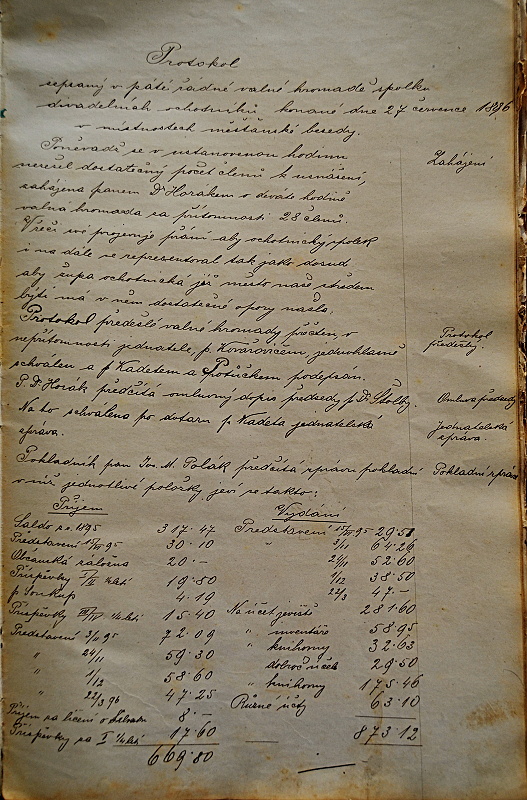 Protokol
sepsaný v páté řádné valné hromadě spolku
divadelních ochotníků konané dne 27 července 1896
v místnostech měšťanské besedy.
Poněvadž se v ustanovenou hodinu
nesešel dostatečný počet členů k usnášení,
Zahájení
zahájena panem Dr Horákem o deváté hodině
valná hromada za přítomnosti 28 členů.
V řeči své projevuje přání aby ochotnický spolek
i na dále se representoval tak jako dosud
aby župa ochotnická jíž město naše středem
býti má v něm dostatečné opory našla.
Protokol předešlé valné hromady přečten, v
Protokol
předešlý.
nepřítomnosti jednatele, p. Kovářovičem jednohlasně
schválen a p Kadetem a Potůčkem podepsán.
P. Dr Horák předčítá omluvný dopis předsedy p Dr. Štolby.
Omluva předsedy
Na to schválena po dotazu p Kadeta jednatelská
zpráva.
jednatelská
zpráva.
Pokladník pan Jos. M. Polák předčítá zprávu pokladní
Pokladní zpráva
v níž jednotlivé položky jeví se takto:
Příjem
Vydání
Saldo z r. 1895 317·47
Představení 15/IV 95 29·51
Představení 15/IV 95 30·10
" 3/11 64·26
Občanská záložna 20·—
" 24/11 52·60
Příspěvky I/II ¼letí 19·80
" 1/12 38·50
p Soukup 4·19
22/3 47·—
Příspěvky III/IV ¼letí 15·40
Na účet jeviště 281·60
Představení 3/11 95 72·09
" inventáře 58·95
" 24/11 59·30
" knihovny 32·63
" 1/12 58·60
dobroč účel 29·50
" 22/3 96 47·25
" knihovny 175·46
Příjem za líčení o 8·—
Různé účty 63·10
Příspěvky za I ¼letí 17·60
873·12
669·80